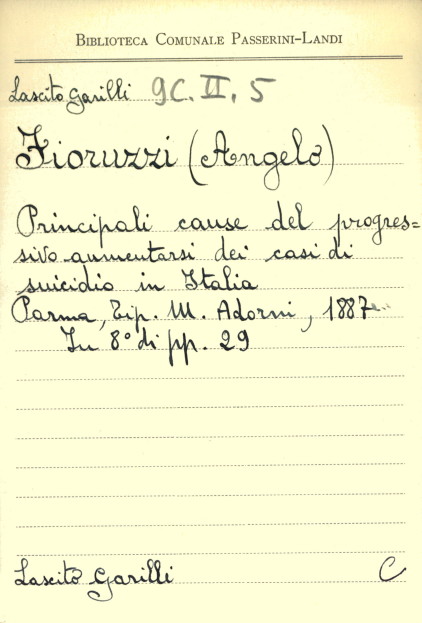 Biblioteca Comunale Passerini-Landi
Lascito Garilli 9C. II. 5
Fioruzzi (Angelo)
Principali cause del progres=
sivo aumentarsi dei casi di
suicidio in Italia
Parma, Tip. M. Adorni, 1887
In 8° di pp. 29
Lascito Garilli C